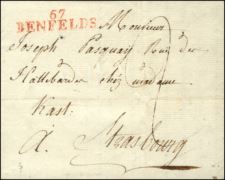 67
BENFELDS.
Monsieur
Joseph Pasquay
Hallebarde chez madame
Kast.
A. Strasbourg